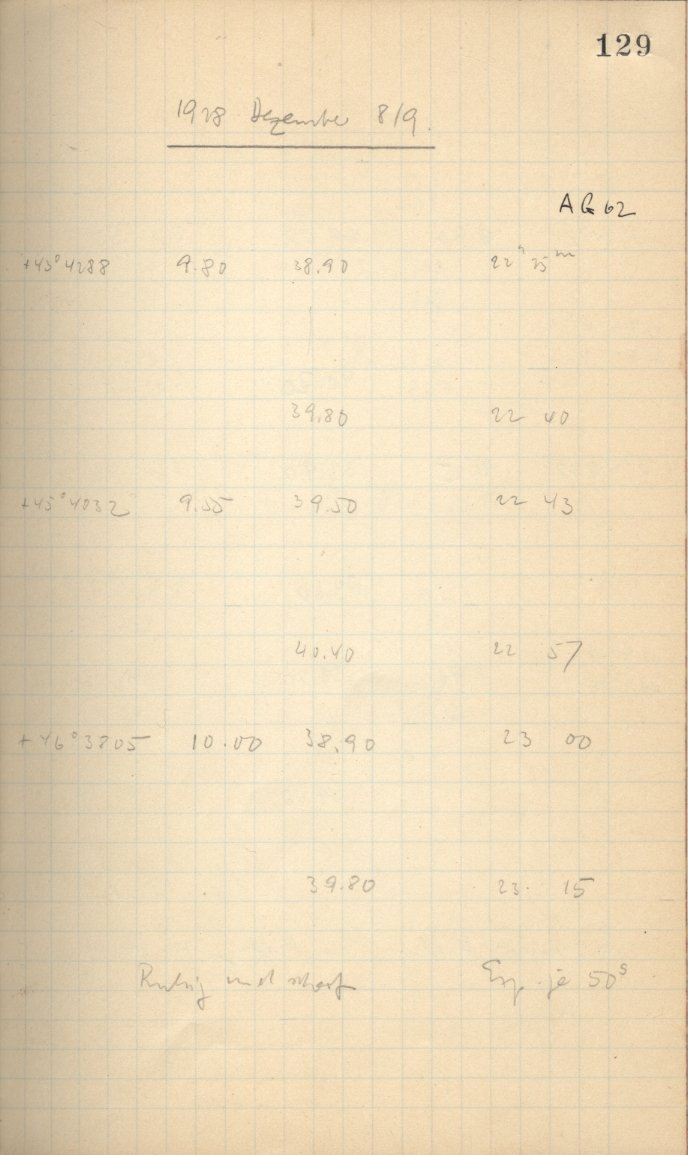 129
1928 Dezember 8/9.
AG 62
+43° 4288 9.80 38.90 22h 25m
39.80 22 40
+45° 4032 9.55 39.50 22 43
40.40 22 57
+46° 3805 10.00 38.90 23 00
39.80 23. 15
Ruhig und scharf Exp. je 50s